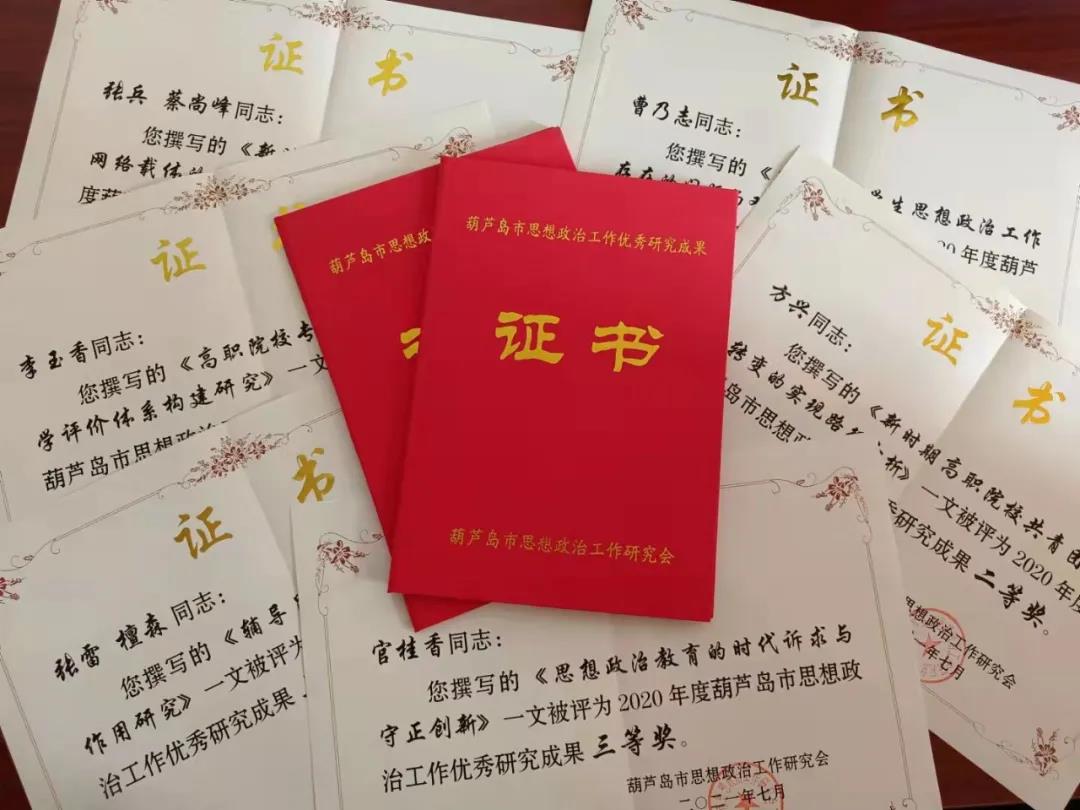 证书
张兵 蔡尚峰同志：
您撰写的《新
网络载体
度葫
证书
曹乃志同志：
您撰写的《
存在的问题
学生思想政治工作
2020年度葫芦
证
李玉香同志：
您撰写的《高职院校专
学评价体系构建研究》一文
葫芦岛市思想政治
葫芦岛市思想政
葫芦岛市思想政治工作优秀研究成果
证书
葫芦岛市思想政治工作研究会
证书
方兴同志：
您撰写的《新时期高职院校共青团
转变的实现路
析》一文被评为2020年度
葫芦岛市思想政
秀研究成果二等奖。
思想政治工作研究会
一年七月
证书
张雷 檀森同志：
您撰写的《辅导
作用研究》一文被评为
治工作优秀研究成果
官桂香同志：
您撰写的《思想政治教育的时代诉求与
守正创新》一文被评为2020年度葫芦岛市思想政
治工作优秀研究成果三等奖。
葫芦岛市思想政治工作研究会
二〇二一年七月